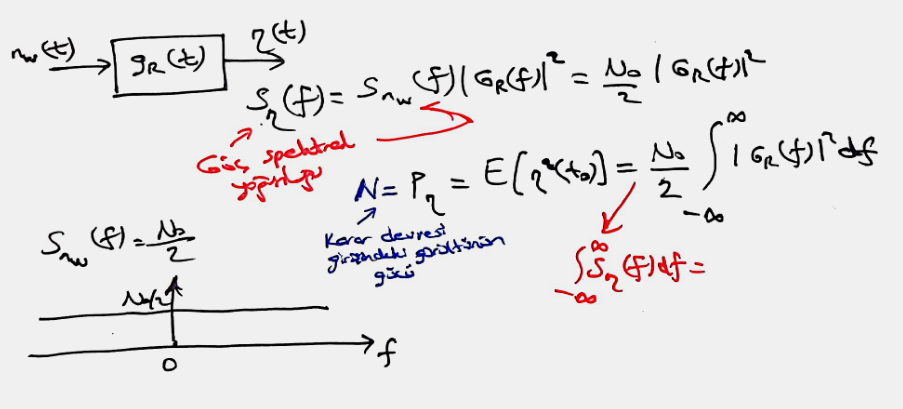 n_w(t) g_R(t) η(t)
S_η(f) = S_{n_w}(f) |G_R(f)|² = N₀/2 |G_R(f)|²
Güç spektral
yoğunluğu
N = P_η = E[η²(t₀)] = N₀/2 ∫_{-∞}^{∞} |G_R(f)|² df
Karar devresi
girişindeki gürültünün
gücü
∫_{-∞}^{∞} S_η(f) df =
S_{n_w}(f) = N₀/2
N₀/2
0
f